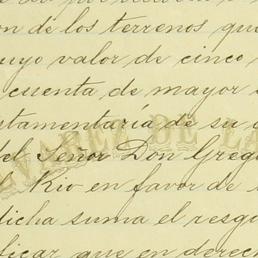 on de los terrenos que
uyo valor de cinco
cuenta de mayor
stamentaría de su
del Señor Don Grego
Rio en favor de
dicha suma el resgu
ficar que en derech